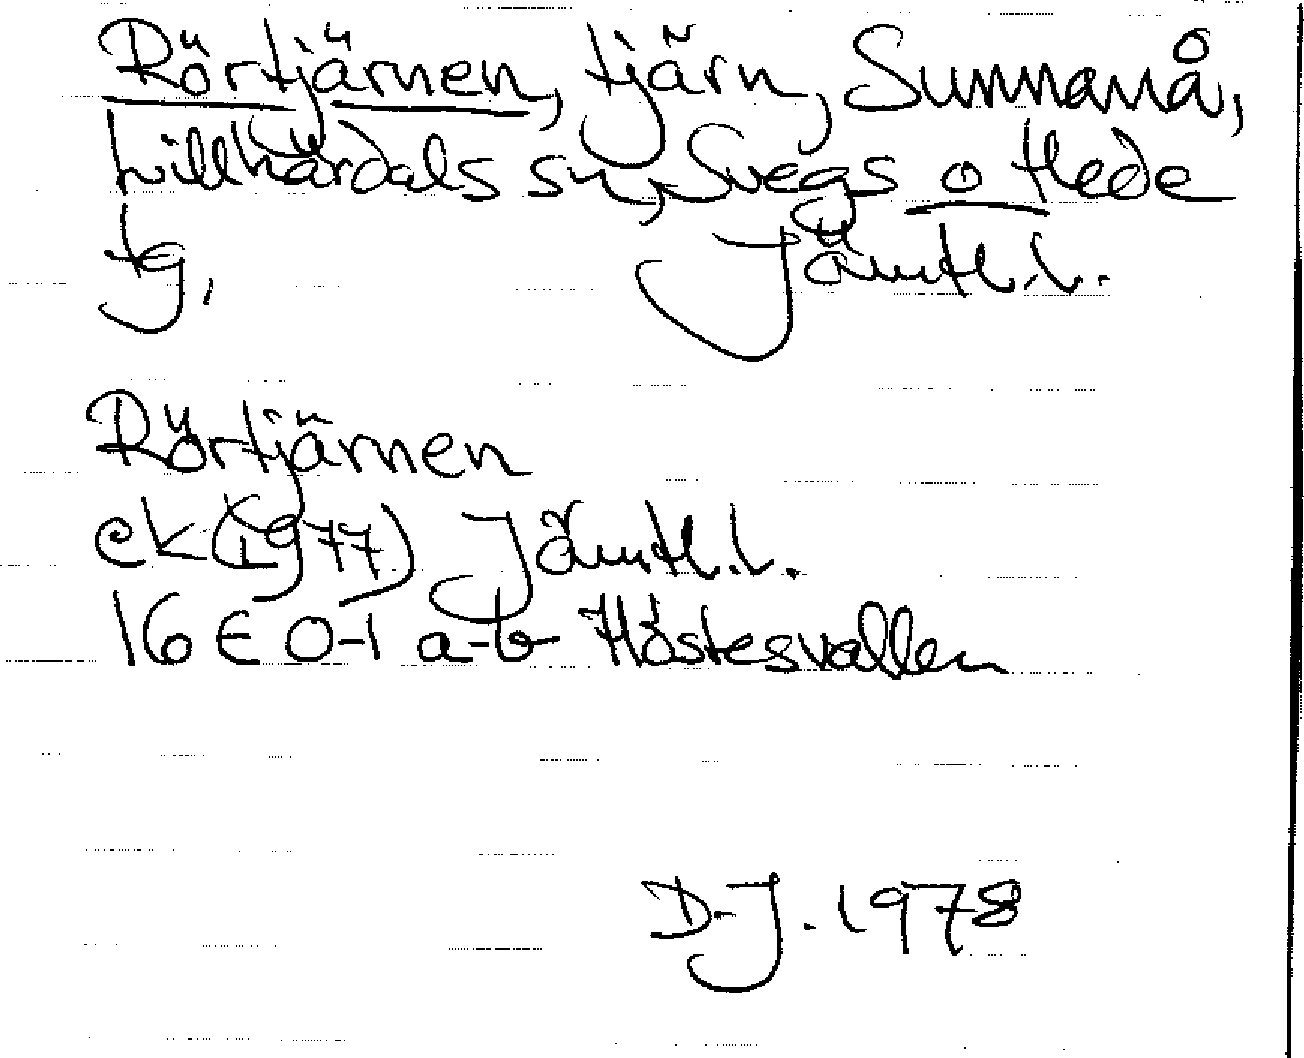 Rörtjärnen, tjärn, Sunnanå,
Lillhärdals sn, Svegs o Hede
tg, Jämtl.l.
Rörtjärnen
ek (1977) Jämtl.l.
16 E 0-1 a-b Höstesvallen
D-J. 1978